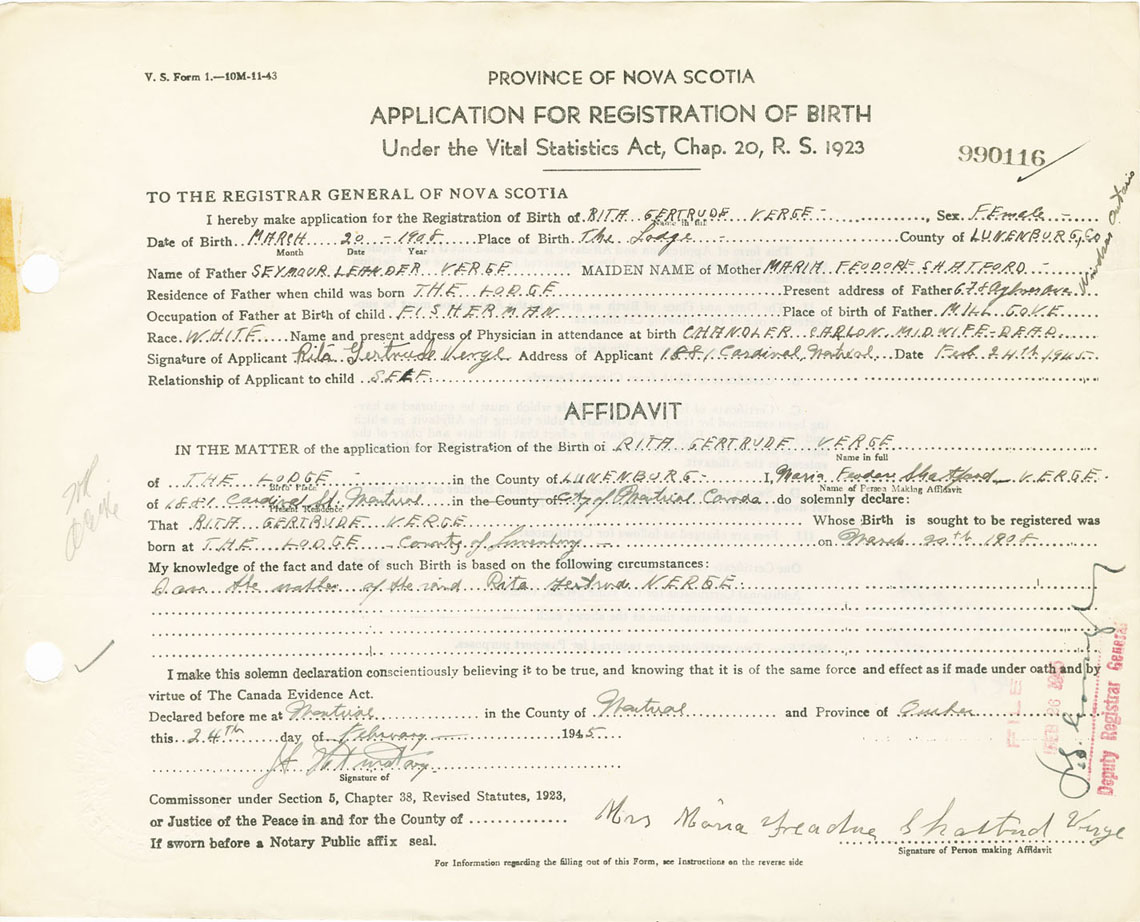 V. S. Form 1.—10M-11-43
PROVINCE OF NOVA SCOTIA
APPLICATION FOR REGISTRATION OF BIRTH
Under the Vital Statistics Act, Chap. 20, R. S. 1923
990116
TO THE REGISTRAR GENERAL OF NOVA SCOTIA
I hereby make application for the Registration of Birth of RITA GERTRUDE VERGE, Sex FEmale
Name in full
Date of Birth MARCH 20 - 1908 Place of Birth The Lodge County of LUNENBURG, Co
Month Date Year
Name of Father SEYMOUR LEANDER VERGE MAIDEN NAME of Mother MARIA FEODORE SHATFORD
Residence of Father when child was born THE LODGE Present address of Father 678 Windsor Ontario
Occupation of Father at Birth of child FISHERMAN Place of Birth of Father MILL COVE
Race WHITE Name and present address of Physician in attendance at birth CHANDLER MIDWIFE - DEAD
Signature of Applicant Rita Gertrude Verge Address of Applicant 1881 Cardinal Montreal Date Feb. 24th 1945
Relationship of Applicant to child SELF
AFFIDAVIT
IN THE MATTER of the application for Registration of the Birth of RITA GERTRUDE VERGE
Name in full
of THE LODGE in the County of LUNENBURG I, Maria Feodore Shatford VERGE
Birth Place Name of Person Making Affidavit
of 1881 Cardinal St. Montreal in the County of City of Montreal Canada do solemnly declare:
Present Residence
That RITA GERTRUDE VERGE Whose Birth is sought to be registered was
born at THE LODGE County of Lunenburg on March 20th 1908
My knowledge of the fact and date of such Birth is based on the following circumstances:
I am the mother of the said Rita Gertrude VERGE
I make this solemn declaration conscientiously believing it to be true, and knowing that it is of the same force and effect as if made under oath and by
virtue of The Canada Evidence Act.
Declared before me at Montreal in the County of Montreal and Province of Quebec
this 24th day of February 1945
Signature of
Commissoner under Section 5, Chapter 38, Revised Statutes, 1923,
or Justice of the Peace in and for the County of
If sworn before a Notary Public affix seal.
Mrs Maria Feadore Shatford Verge
Signature of Person making Affidavit
For Information regarding the filling out of this Form, see Instructions on the reverse side
FILE
FEB 26 1945
Deputy Registrar General